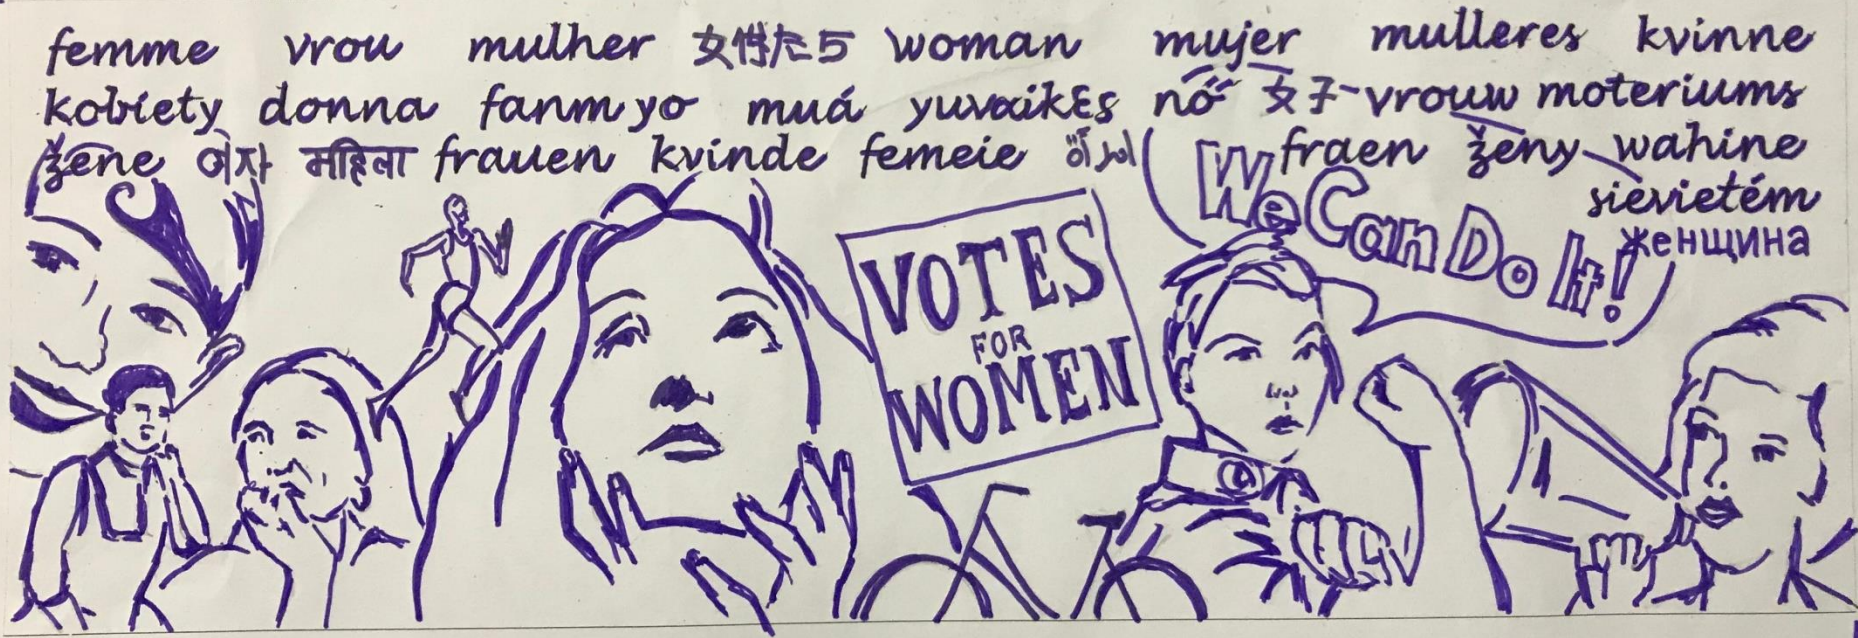 femme vrou mulher 女性たち woman mujer mulleres kvinne
kobiety donna fanm yo muá yuvaikεs nő 女子 vrouw moteriums
žene 여자 महिला frauen kvinde femeie fraen ženy wahine
sievietém
женщина
We Can Do It!
VOTES
FOR
WOMEN